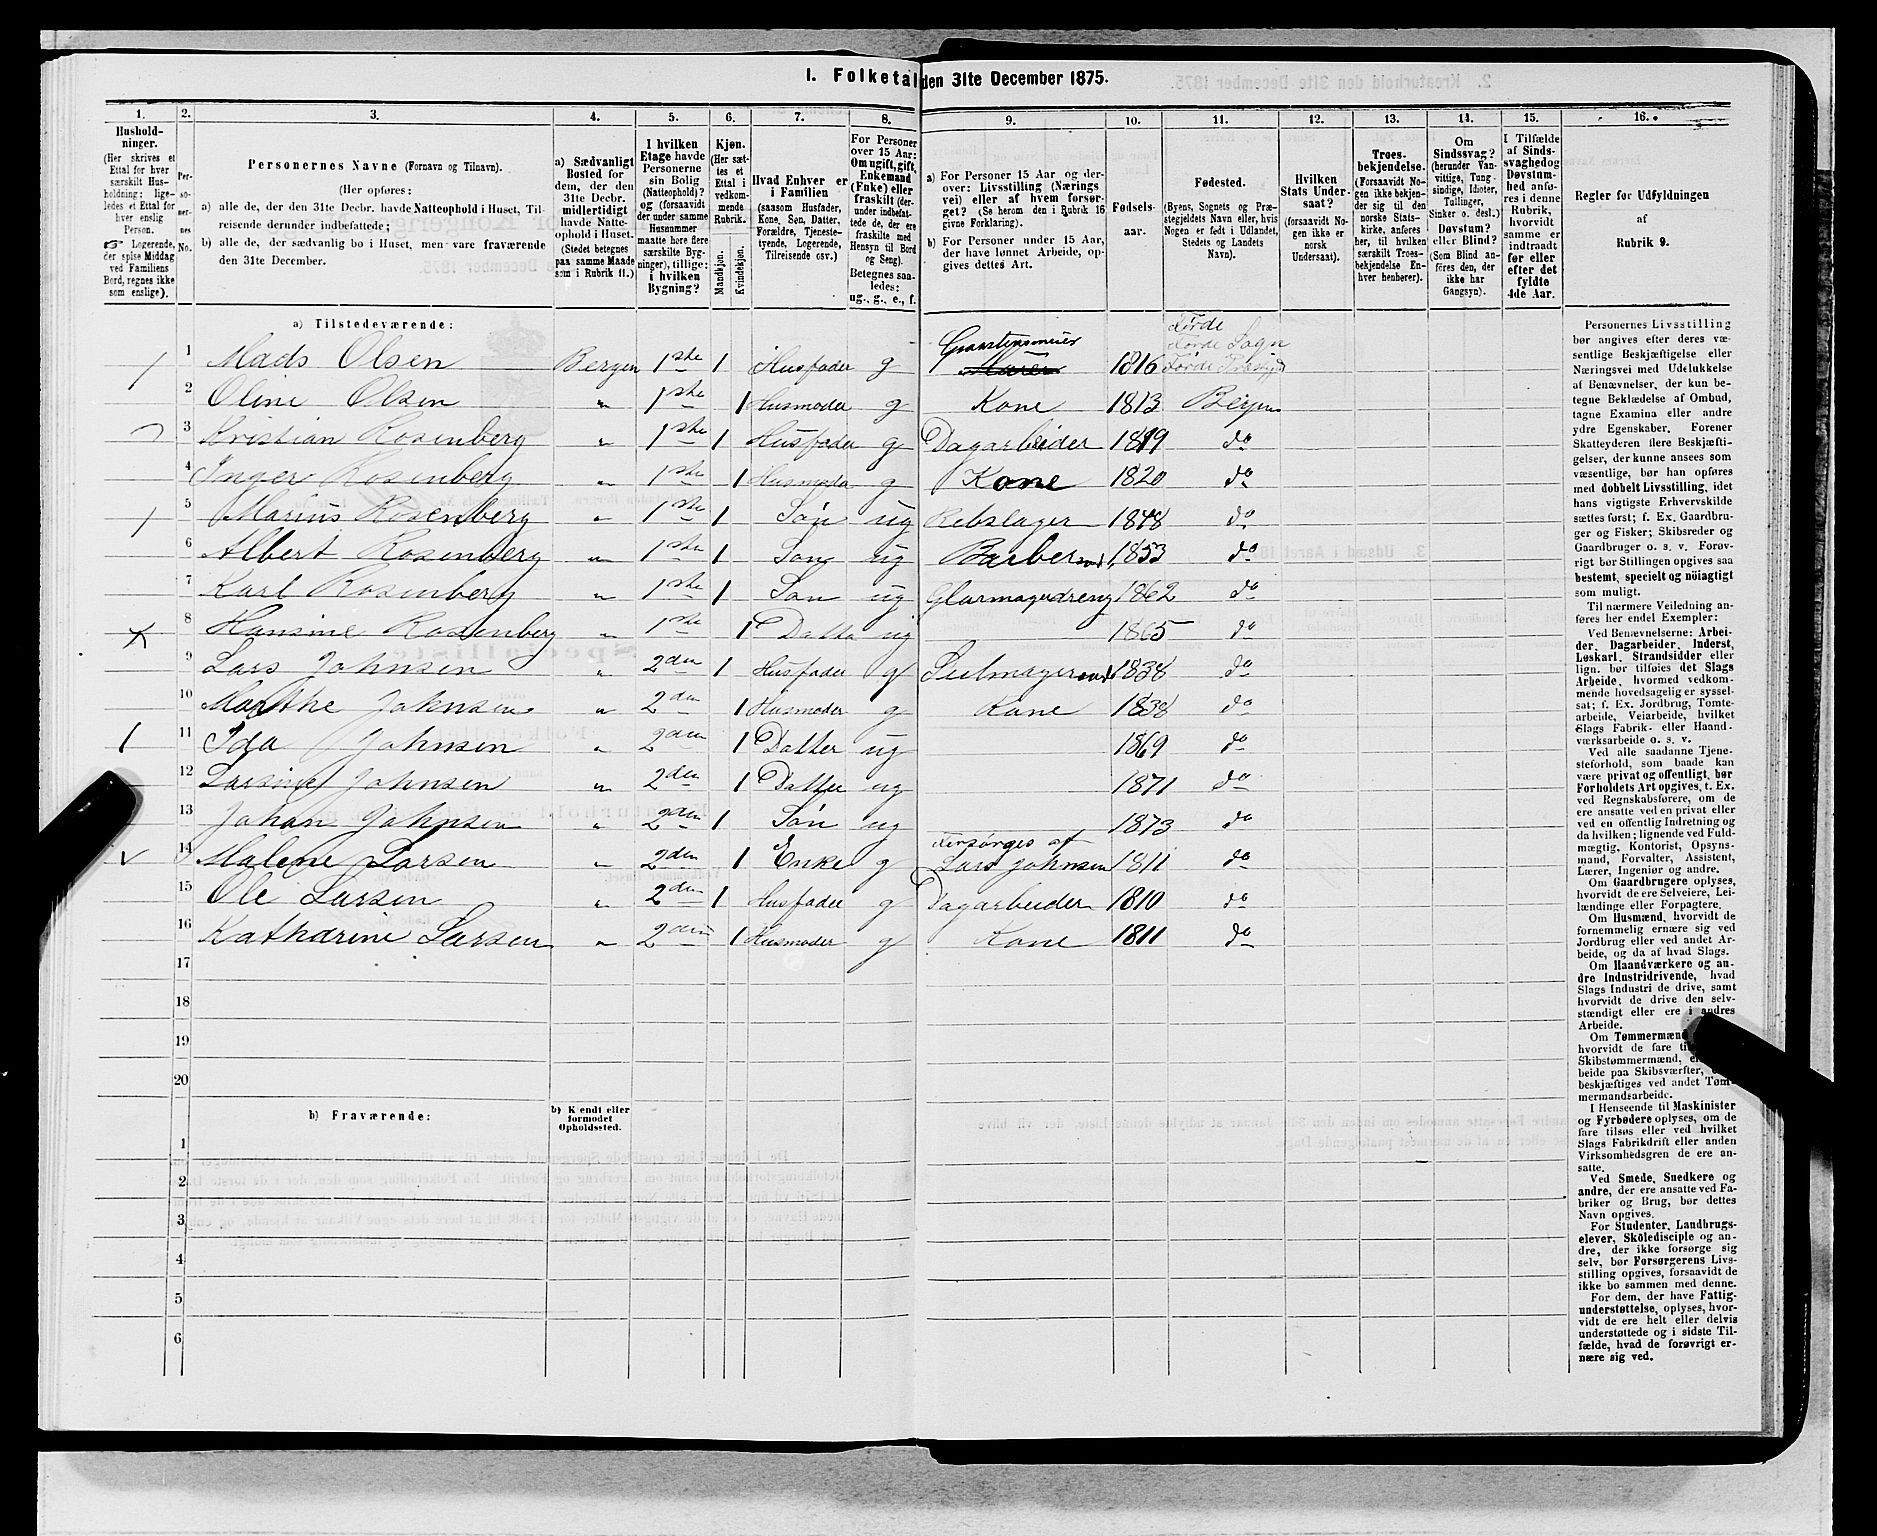 1. Folketal den 31te December 1875.
1. 2. 3. 4. 5. 6. 7. 8. 9. 10. 11. 12. 13. 14. 15. 16.
Hushold-
ninger.
(Her skrives et
Ettal for hver
særskilt Hus-
holdning; lige-
ledes et Ettal for
hver enslig
Person.
☞ Logerende,
der spise Middag
ved Familiens
Bord, regnes ikke
som enslige).
Per-
so-
ner-
nes
No.
Personernes Navne (Fornavn og Tilnavn).
(Her opføres:
a) alle de, der den 31te Decbr. havde Natteophold i Huset, Til-
reisende derunder indbefattede;
b) alle de, der sædvanlig bo i Huset, men vare fraværende
den 31te December.
a) Sædvanligt
Bosted for
dem, der den
31te Decbr.
midlertidigt
havde Natte-
ophold i Huset.
(Stedet betegnes
paa samme Maade
som i Rubrik 11.)
I hvilken
Etage havde
Personerne
sin Bolig
(Natteophold)?
og (forsaavidt
der under samme
Husnummer
maatte høre flere
særskilte Byg-
ninger), tillige:
i hvilken
Bygning?
Kjøn.
(Her sæt-
tes et
Ettal i
vedkom-
mende
Rubrik.
Mandkjøn.
Kvindekjøn.
Hvad Enhver er
i Familien
(saasom Husfader,
Kone, Søn, Datter,
Forældre, Tjeneste-
tyende, Logerende,
Tilreisende osv.)
For Personer
over 15 Aar:
Om ugift, gift,
Enkemand
(Enke) eller
fraskilt (der-
under indbefat-
tede de, der ere
fraskilte med
Hensyn til Bord
og Seng).
Betegnes saa-
ledes:
ug., g., e., f.
a) For Personer 15 Aar og der-
over: Livsstilling (Nærings
vei) eller af hvem forsør-
get? (Se herom den i Rubrik 16
givne Forklaring).
b) For Personer under 15 Aar,
der have lønnet Arbeide, op-
gives dettes Art.
Fødsels-
aar.
Fødested.
(Byens, Sognets og Præ-
stegjeldets Navn eller, hvis
Nogen er født i Udlandet,
Stedets og Landets
Navn).
Hvilken
Stats Under-
saat?
(forsaavidt No-
gen ikke er
norsk
Undersaat).
Troes-
bekjendelse.
(Forsaavidt No-
gen ikke bekjen-
der sig til den
norske Stats-
kirke, anføres
her, til hvilken
særskilt Troes-
bekjendelse En-
hver henhører).
Om
Sindssvag?
(herunder Van-
vittige, Tung-
sindige, Idioter,
Tullinger,
Sinker o. desl.)
Døvstum?
eller Blind?
(Som Blind an-
føres den, der
ikke har
Gangsyn).
I Tilfælde
af Sinds-
svaghed og
Døvstum-
hed anfø-
res i denne
Rubrik,
hvorvidt
samme er
indtraadt
før eller
efter det
fyldte
4de Aar.
Regler før Udfyldningen
af
Rubrik 9.
a) Tilstedeværende:
1 Mads Olsen Bergen 1ste 1 Husfader g Graastensmurer Murer 1816 Førde Førde Sogn Førde
2 Oline Olsen " 1ste 1 Husmoder g Kone 1813 Bergen
3 Kristian Rosenberg " 1ste 1 Husfader g Dagarbeider 1819 do
4 Inger Rosenberg " 1ste 1 Husmoder g Kone 1820 do
5 Marius Rosenberg " 1ste 1 Søn ug Rebslager 1848 do
6 Albert Rosenberg " 1ste 1 Søn ug Barbersvd. 1853 do
7 Karl Rosenberg " 1ste 1 Søn ug Glarmagerdreng 1862 do
8 Hansine Rosenberg " 1ste 1 Datter ug 1865 do
9 Lars Johnsen " 2den 1 Husfader g Seilmagersvd 1838 do
10 Marthe Johnsen " 2den 1 Husmoder g Kone 1838 do
11 Ida Johnsen " 2den 1 Datter ug 1869 do
12 Larsine Johnsen " 2den 1 Datter ug 1871 do
13 Johan Johnsen " 2den 1 Søn ug 1873 do
14 Malene Larsen " 2den 1 Enke g Forsørges af Lars Johnsen 1811 do
15 Ole Larsen " 2den 1 Husfader g Dagarbeider 1810 do
16 Katharine Larsen " 2den 1 Husmoder g Kone 1811 do
17
18
19
20
b) Fraværende:
b) Kjendt eller
formodet
Opholdssted.
1
2
3
4
5
6
Personernes Livsstilling
bør angives efter deres væ-
sentlige Beskjæftigelse eller
Næringsvei med Udelukkelse
af Benævnelser, der kun be-
tegne Beklædelse af Ombud,
tagne Examina eller andre
ydre Egenskaber. Forener
Skatteyderen flere Beskjæfti-
gelser, der kunne ansees som
væsentlige, bør han opføres
med dobbelt Livsstilling, idet
hans vigtigste Erhvervskilde
sættes først; f. Ex. Gaardbru-
ger og Fisker; Skibsreder og
Gaardbruger o. s. v. Forøv-
rigt bør Stillingen opgives saa
bestemt, specielt og nöiagtigt
som muligt.
Til nærmere Veiledning an-
føres her endel Exempler:
Ved Benævnelserne: Arbei-
der, Dagarbeider, Inderst,
Løskarl, Strandsidder eller
lign. bør tilføies det Slags
Arbeide, hvormed vedkom-
mende hovedsagelig er syssel-
sat; f. Ex. Jordbrug, Tomte-
arbeide, Veiarbeide, hvilket
Slags Fabrik- eller Haand-
værksarbeide o. s. v.
Ved alle saadanne Tjene-
steforhold, som baade kan
være privat og offentligt, bør
Forholdets Art opgives, t. Ex.
ved Regnskabsførere, om de
ere ansatte ved en privat eller
ved en offentlig Indretning og
da hvilken; lignende ved Fuld-
mægtig, Kontorist, Opsyns-
mand, Forvalter, Assistent,
Lærer, Ingeniør og andre.
Om Gaardbrugere oplyses,
hvorvidt de ere Selveiere, Lei-
lændinge eller Forpagtere.
Om Husmænd, hvorvidt de
fornemmelig ernære sig ved
Jordbrug eller ved andet Ar-
beide, og da af hvad Slags.
Om Haandværkere og an-
dre Industridrivende, hvad
Slags Industri de drive, samt
hvorvidt de drive den selv-
stændigt eller ere i andres
Arbeide.
Om Tømmermænd
hvorvidt de fare
Skibstømmermænd,
beide paa Skibsværfter,
beskjæftiges ved andet Tøm-
mermandsarbeide.
I Henseende til Maskinister
og Fyrbødere oplyses, om de
fare tilsøs eller ved hvilket
Slags Fabrikdrift eller anden
Virksomhedsgren de ere an-
satte.
Ved Smede, Snedkere og
andre, der ere ansatte ved Fa-
briker og Brug, bør dettes
Navn opgives.
For Studenter, Landbrugs-
elever, Skoledisciple og an-
dre, der ikke forsørge sig
selv, bør Forsørgerens Livs-
stilling opgives, forsaavidt de
ikke bo sammen med denne.
For dem, der have Fattig-
understøttelse, oplyses, hvor-
vidt de ere helt eller delvis
understøttede og i sidste Til-
fælde, hvad de forøvrigt er-
nære sig ved.